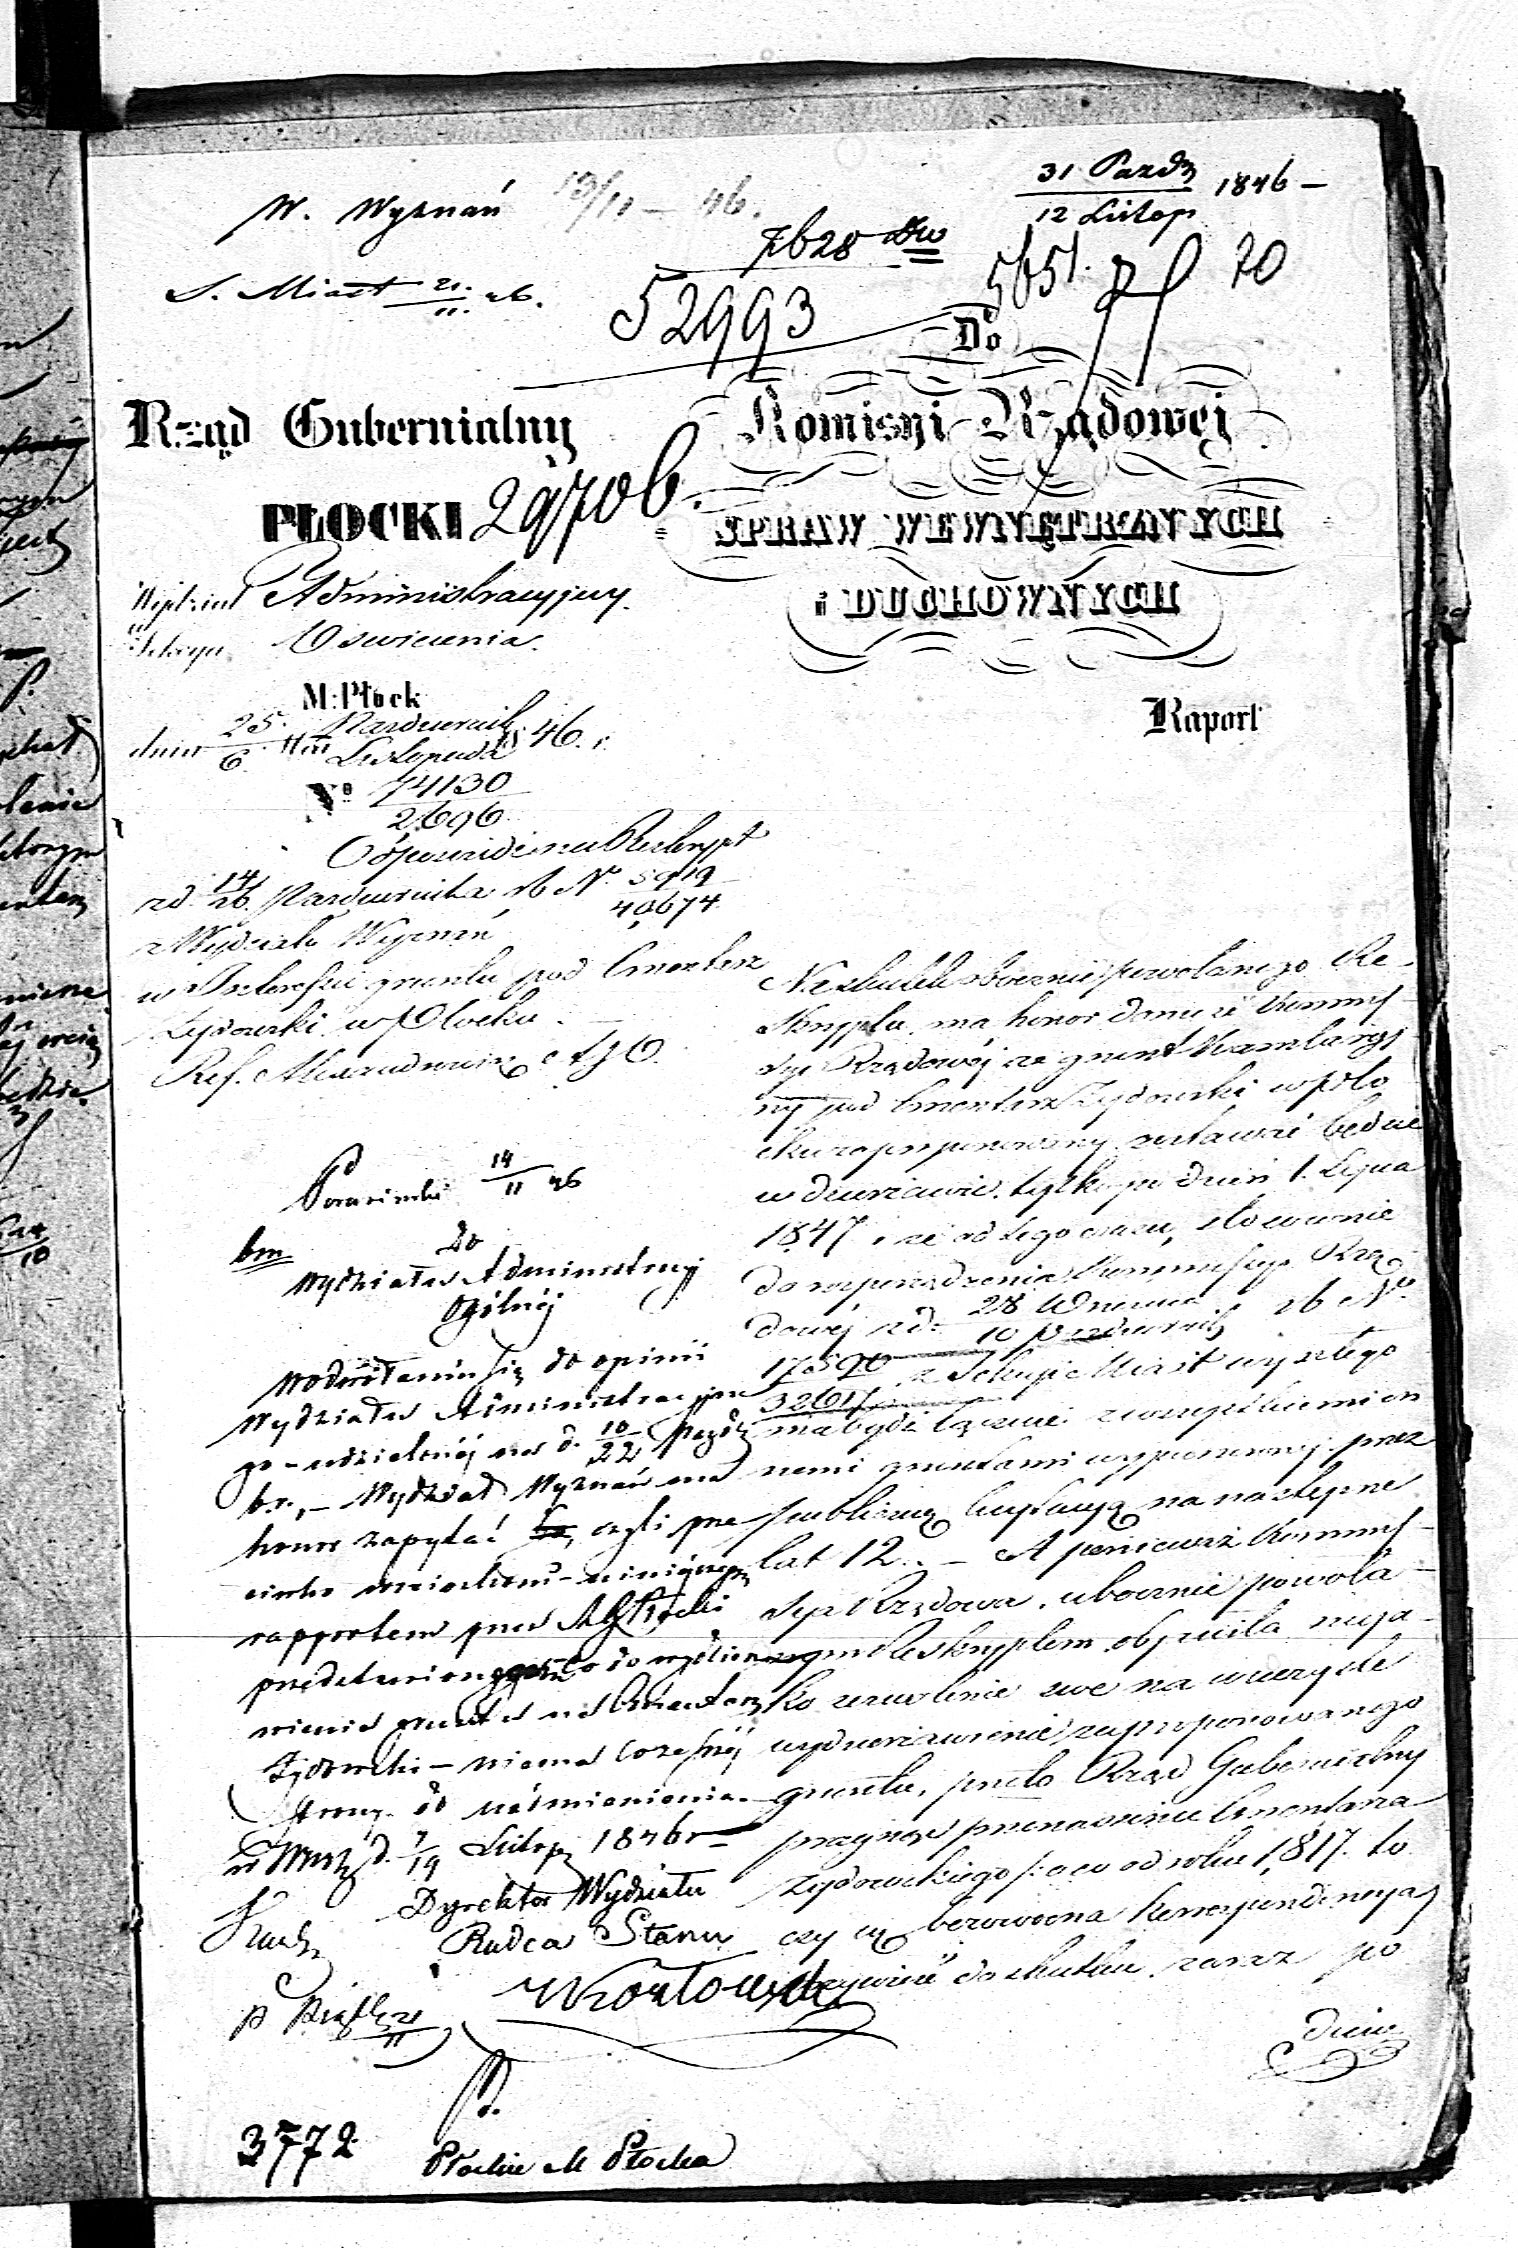 W. Wyznań 13/11 – 46.
31 Paźdz
12 Listop 1846 –
S. Miast 21/11 46.
52993
5651.
20
Do
Rząd Gubernialny
PŁOCKI 29706.
Komisyi Rządowej
SPRAW WEWNĘTRZNYCH
i DUCHOWNYCH
Wydział Administracyjny.
Sekcya Oświecenia.
M: Płock
Raport
dnia 25. Października
6. Listopada 1846. r.
No 74130
2696
Odpowiedź na Reskrypt
z d. 14/26. Października rb N. 5919
40,674
z Wydziału Wyznań
w Interesie gruntu pod Cmentarz
Żydowski w Płocku. –
Ref. Alexandrowicz
Na skutek obocznie powołanego Re-
skryptu, ma honor donieść Kommis-
syi Rządowej że grunt
ny pod Cmentarz Żydowski w Pło
cku zaproponowany zostawać będzie
w dzierżawie tylko po dzień 1. Lipca
1847 i że od tego czasu, stosownie
do rozporządzenia Kommissyi Rzą-
dowej z d. 28 Września
10 Października rb No
17590
32617 z Sekcyi Miast wyszłego
ma bydź łącznie z wszystkiemi in
nemi gruntami wypuszczony przez
publiczną licytacyą na następne
lat 12. – A ponieważ Kommis-
sya Rządowa, ubocznie powoła-
nym Reskryptem objawiła nieja-
ko zezwolenie swe na wieczyste
wydzierżawienie zaproponowanego
gruntu, przeto Rząd Gubernialny
pragnąc przenoszenie Cmentarza
Żydowskiego /: o co od roku 1817. to
czy się bezowocna korrespondencya/
do skutku zaraz po
14/11 46
Do
Wydziału Administracyi
Ogólnej
W odwołaniu się do opinii
Wydziału Administracyjne
go – udzielonéj na d. 10/22 Paźdz
b.r., – Wydział Wyznań ma
honor zapytać czyli prze
ciwko wnioskom – niniejszym
rapportem przez RG Płocki
przedstawionym co do wydzierża
wienia gruntu na Cmentarz
Żydowski – niema ze swéj
strony co do nadmienienia.
w Warsz d. 7/19 Listop 1846 r –
Dyrektor Wydziału
Radca Stanu
3772
Płockie M Płocka